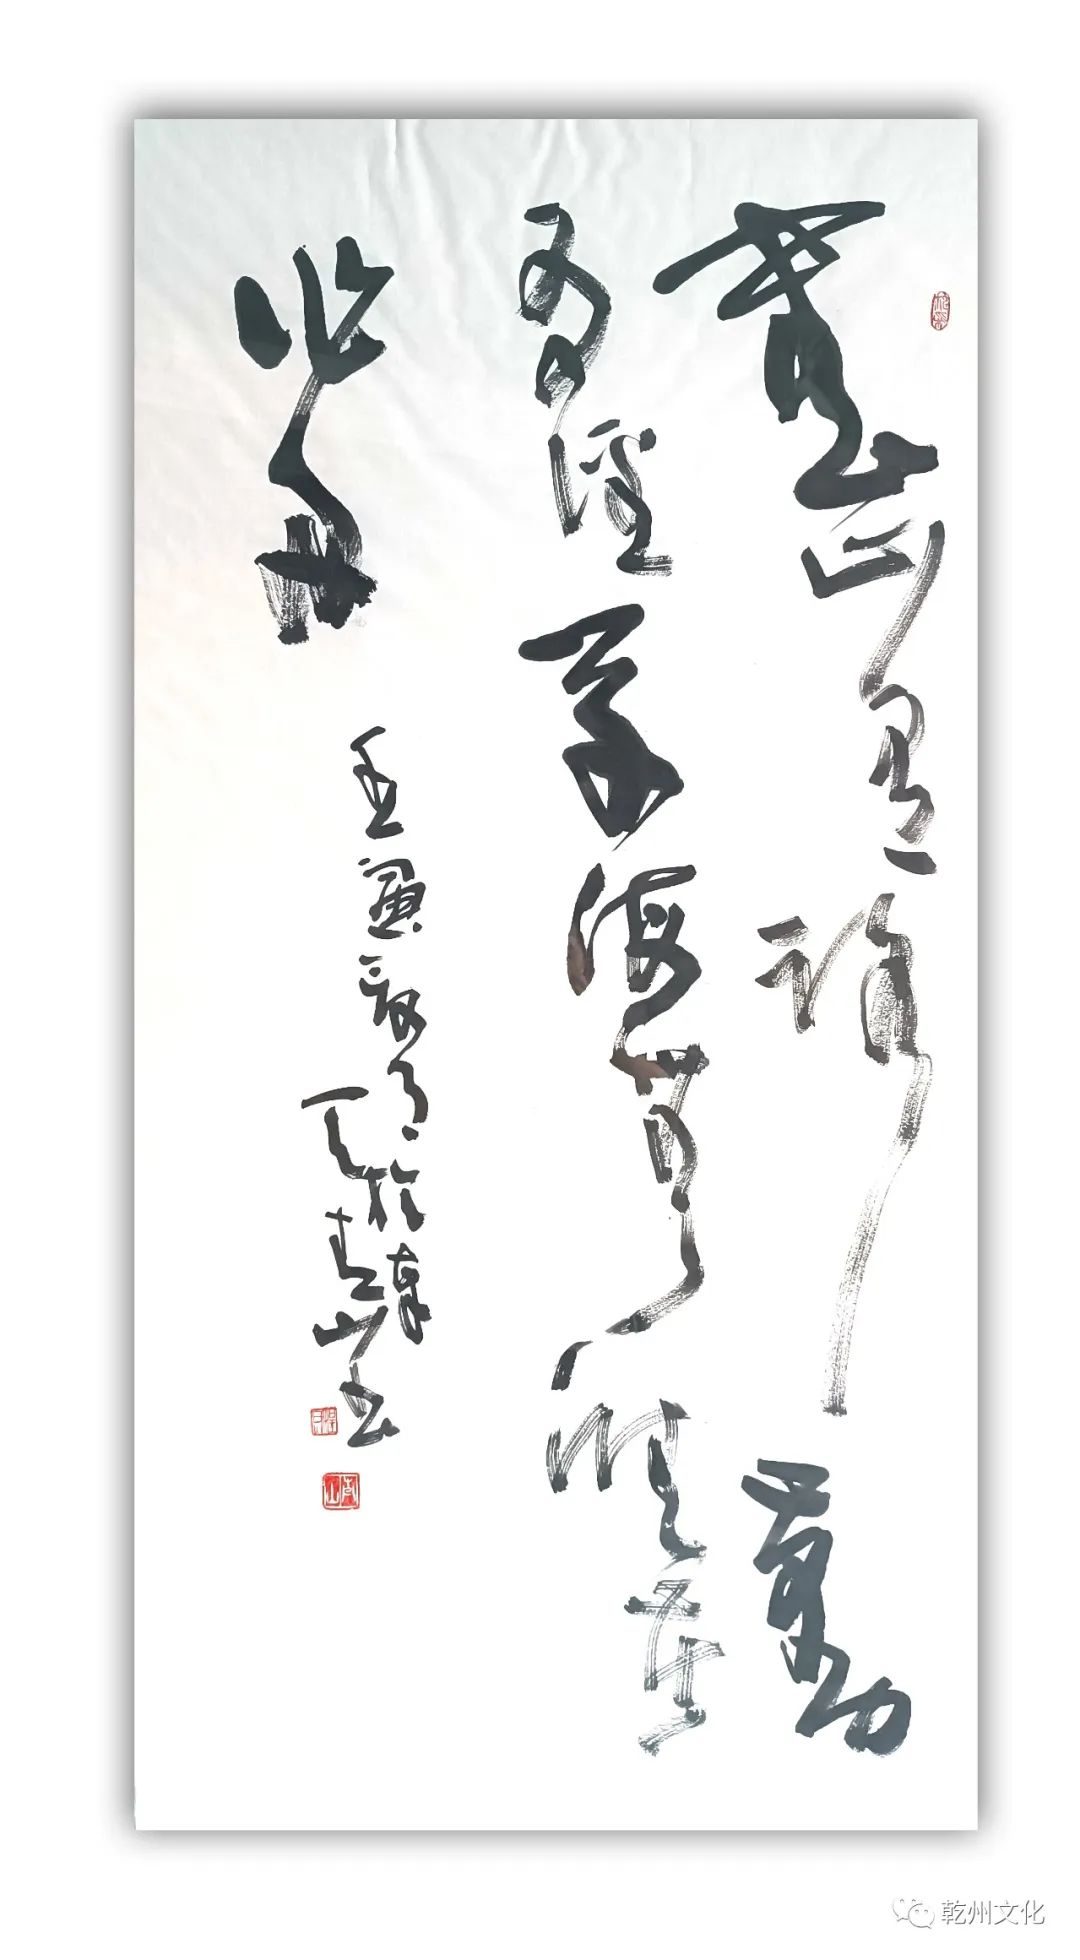 書山有路勤
為徑學海無涯苦
作舟
壬寅
於乾
青山書
乾州文化